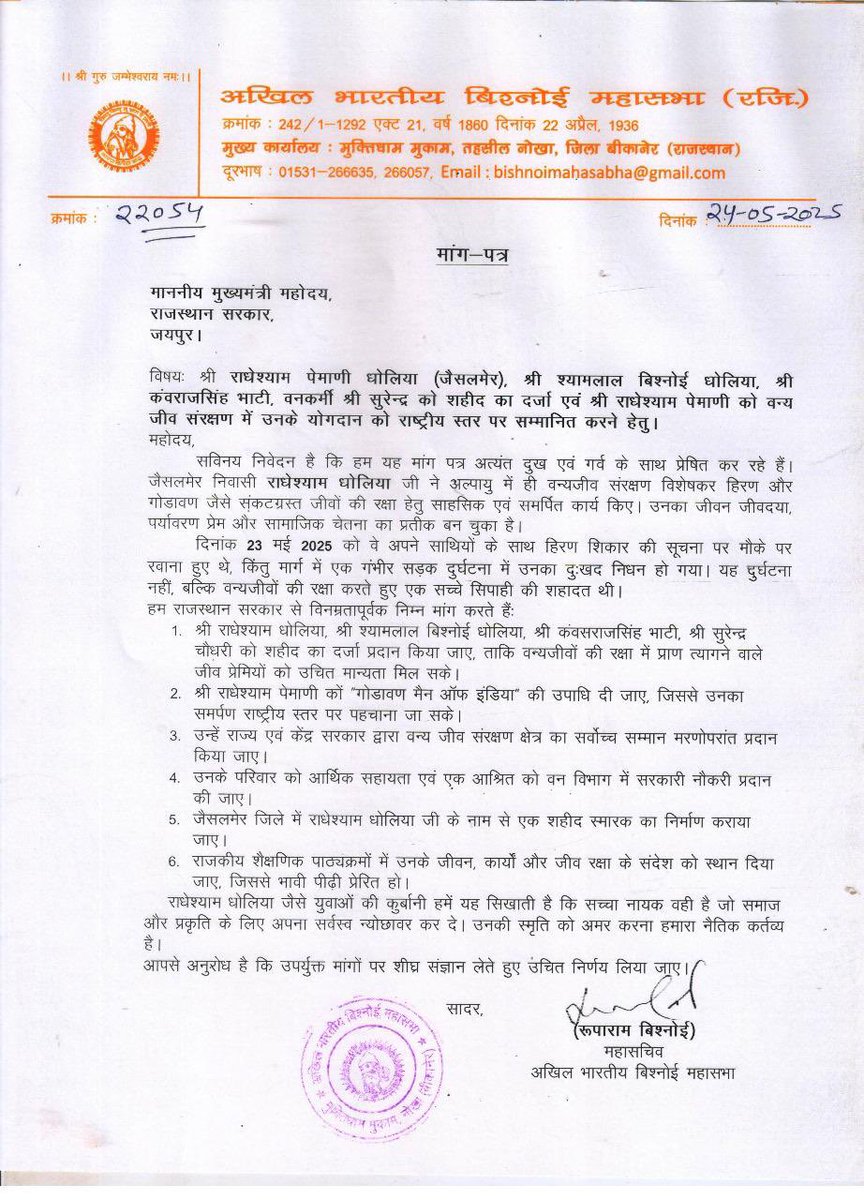 ।। श्री गुरु जम्भेश्वराय नमः।।
अखिल भारतीय बिश्नोई महासभा (रजि.)
क्रमांक : 242/1-1292 एक्ट 21, वर्ष 1860 दिनांक 22 अप्रैल, 1936
मुख्य कार्यालय : मुक्तिधाम मुकाम, तहसील नोखा, जिला बीकानेर (राजस्थान)
दूरभाष : 01531-266635, 266057, Email : bishnoimahasabha@gmail.com
क्रमांक : 22054
दिनांक : 24-05-2025
मांग–पत्र
माननीय मुख्यमंत्री महोदय,
राजस्थान सरकार,
जयपुर।
विषयः श्री राधेश्याम पेमाणी धोलिया (जैसलमेर), श्री श्यामलाल बिश्नोई धोलिया, श्री
कंवराजसिंह भाटी, वनकर्मी श्री सुरेन्द्र को शहीद का दर्जा एवं श्री राधेश्याम पेमाणी को वन्य
जीव संरक्षण में उनके योगदान को राष्ट्रीय स्तर पर सम्मानित करने हेतु।
महोदय,
सविनय निवेदन है कि हम यह मांग पत्र अत्यंत दुख एवं गर्व के साथ प्रेषित कर रहे हैं।
जैसलमेर निवासी राधेश्याम धोलिया जी ने अल्पायु में ही वन्यजीव संरक्षण विशेषकर हिरण और
गोडावण जैसे संकटग्रस्त जीवों की रक्षा हेतु साहसिक एवं समर्पित कार्य किए। उनका जीवन जीवदया,
पर्यावरण प्रेम और सामाजिक चेतना का प्रतीक बन चुका है।
दिनांक 23 मई 2025 को वे अपने साथियों के साथ हिरण शिकार की सूचना पर मौके पर
रवाना हुए थे, किंतु मार्ग में एक गंभीर सड़क दुर्घटना में उनका दुःखद निधन हो गया। यह दुर्घटना
नहीं, बल्कि वन्यजीवों की रक्षा करते हुए एक सच्चे सिपाही की शहादत थी।
हम राजस्थान सरकार से विनम्रतापूर्वक निम्न मांग करते हैंः
1. श्री राधेश्याम धोलिया, श्री श्यामलाल बिश्नोई धोलिया, श्री कंवसराजसिंह भाटी, श्री सुरेन्द्र
चौधरी को शहीद का दर्जा प्रदान किया जाए, ताकि वन्यजीवों की रक्षा में प्राण त्यागने वाले
जीव प्रेमियों को उचित मान्यता मिल सके।
2. श्री राधेश्याम पेमाणी कों "गोडावण मैन ऑफ इंडिया" की उपाधि दी जाए, जिससे उनका
समर्पण राष्ट्रीय स्तर पर पहचाना जा सके।
3. उन्हें राज्य एवं केंद्र सरकार द्वारा वन्य जीव संरक्षण क्षेत्र का सर्वोच्च सम्मान मरणोपरांत प्रदान
किया जाए।
4. उनके परिवार को आर्थिक सहायता एवं एक आश्रित को वन विभाग में सरकारी नौकरी प्रदान
की जाए।
5. जैसलमेर जिले में राधेश्याम धोलिया जी के नाम से एक शहीद स्मारक का निर्माण कराया
जाए।
6. राजकीय शैक्षणिक पाठ्यक्रमों में उनके जीवन, कार्यों और जीव रक्षा के संदेश को स्थान दिया
जाए, जिससे भावी पीढ़ी प्रेरित हो।
राधेश्याम धोलिया जैसे युवाओं की कुर्बानी हमें यह सिखाती है कि सच्चा नायक वही है जो समाज
और प्रकृति के लिए अपना सर्वस्व न्योछावर कर दे। उनकी स्मृति को अमर करना हमारा नैतिक कर्तव्य
है।
आपसे अनुरोध है कि उपर्युक्त मांगों पर शीघ्र संज्ञान लेते हुए उचित निर्णय लिया जाए।
सादर,
(रूपाराम बिश्नोई)
महासचिव
अखिल भारतीय बिश्नोई महासभा
अखिल भारतीय बिश्नोई महासभा
मुक्तिधाम मुकाम, नोखा (बीकानेर)